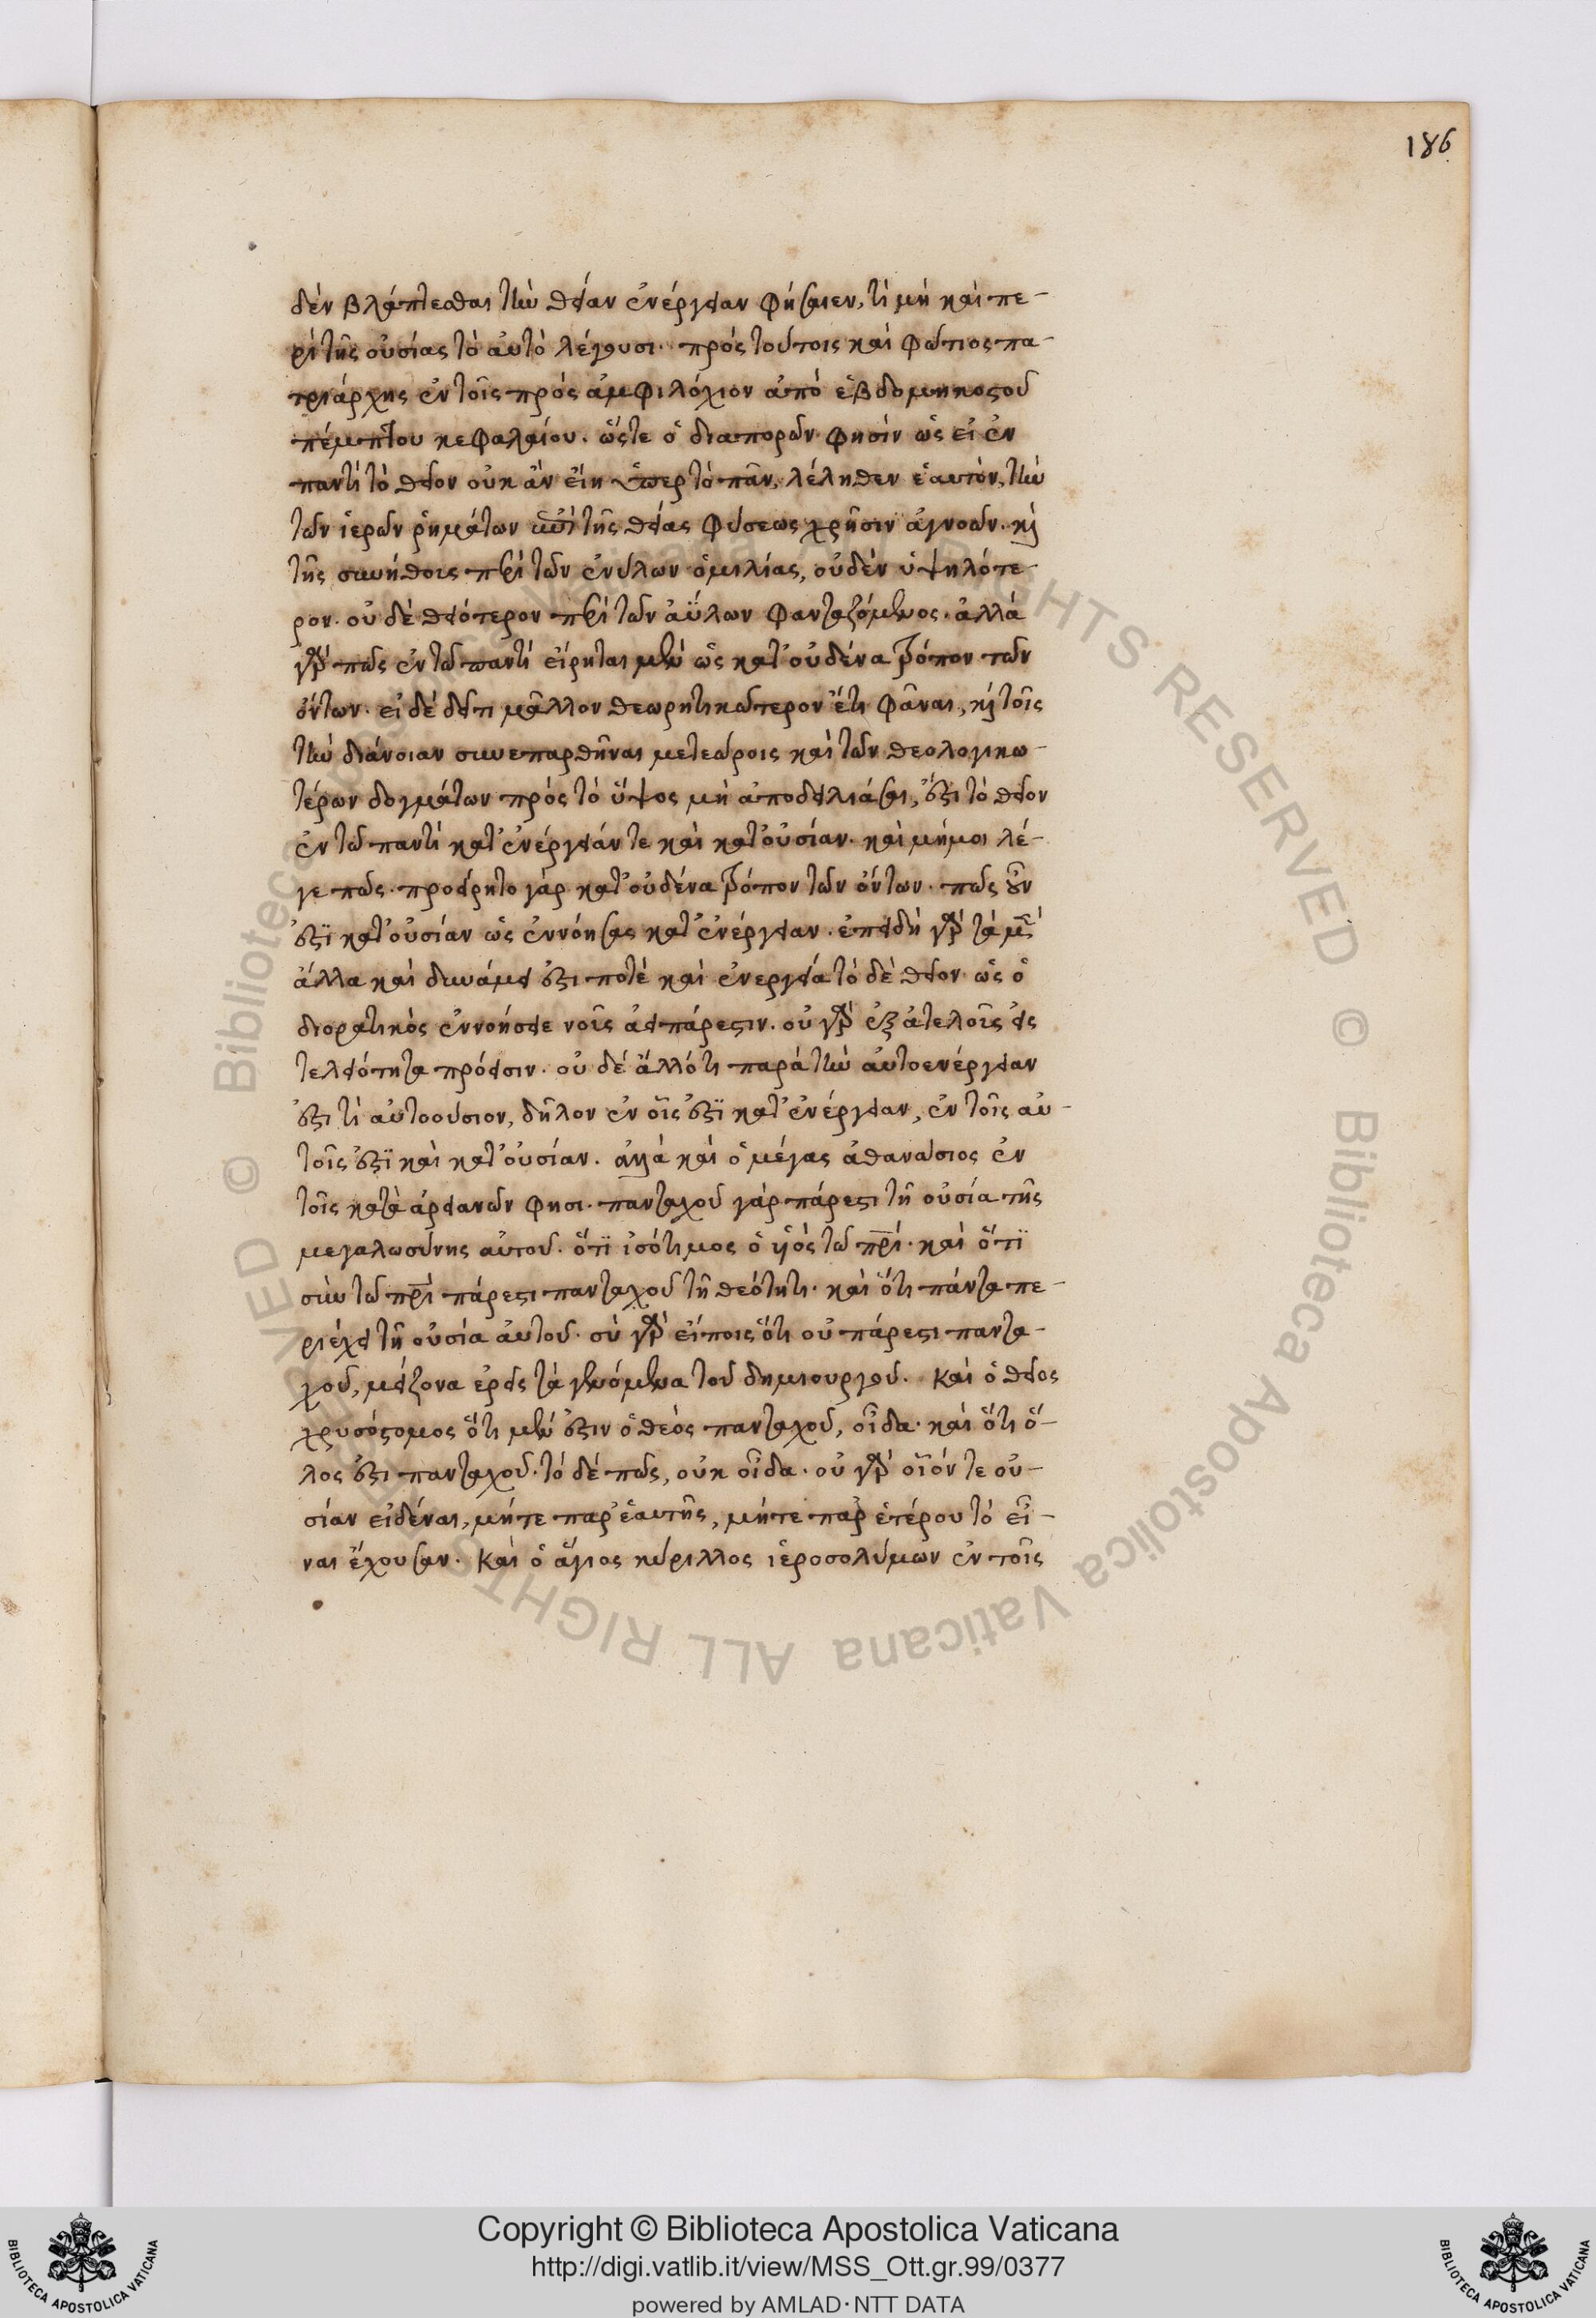 186
δὲν βλάπτεσθαι τὴν θείαν ἐνέργειαν φήσαιεν, τί μὴ καὶ πε-
ρὶ τῆς οὐσίας τὸ αὐτὸ λέγουσι. πρὸς τούτοις καὶ φώτιος πα-
τριάρχης ἐν τοῖς πρὸς ἀμφιλόχιον ἀπὸ ἑβδομηκοστοῦ
πέμπτου κεφαλαίου. ὥστε ὁ διαπορῶν φησὶν ὡς εἰ ἐν
παντὶ τὸ θεῖον οὐκ ἂν εἴη ὑπερ τὸ πᾶν, λέληθεν ἑαυτὸν, τὴν
τῶν ἱερῶν ῥημάτων ἐπὶ τῆς θείας φύσεως χρῆσιν ἀγνοῶν. καὶ
τῆς συνήθους περὶ τῶν ἐνύλων ὁμιλίας, οὐδὲν ὑψηλότε-
ρον. οὐ δὲ θειότερον περὶ τῶν ἀΰλων φανταζόμενος. ἀλλὰ
γὰρ πῶς ἐν τῶ παντὶ εἴρηται μὲν ὡς κατ' οὐδένα τρόπον τῶν
ὄντων. εἰ δὲ δεῖ τι μᾶλλον θεωρητικώτερον ἔτι φᾶναι, καὶ τοῖς
τὴν διάνοιαν συνεπαρθῆναι μετεώροις καὶ τῶν θεολογικω-
τέρων δογμάτων πρὸς τὸ ὕψος μὴ ἀποδειλιάσαι, ἔστι τὸ θεῖον
ἐν τῶ παντὶ κατ' ἐνέργειάν τε καὶ κατ' οὐσίαν. καὶ μή μοι λέ-
γε πῶς. προείρητο γὰρ κατ' οὐδένα τρόπον τῶν ὄντων. πῶς οὖν
ἐστϊ κατ' οὐσίαν ὡς ἐννόησας κατ' ἐνέργειαν. ἐπειδὴ γὰρ τὰ μὲν
ἄλλα καὶ δυνάμει ἐστι ποτὲ καὶ ἐνεργεία τὸ δὲ θεῖον. ὡς ὁ
διορατικὸς ἐννοήσειε νοῦς ἀεὶ πάρεστιν. οὐ γὰρ ἐξ ἀτελοῦς εἰς
τελειότητα πρόεισιν. οὐ δὲ ἄλλό τι παρὰ τὴν αὐτοενέργειαν
ἐστι τὶ αὐτοούσιον, δῆλον ἐν οἷς ἐστϊ κατ' ἐνέργειαν, ἐν τοῖς αὐ-
τοῖς ἐστϊ καὶ κατ' οὐσίαν. ἀλλὰ καὶ ὁ μέγας ἀθανάσιος ἐν
τοῖς κατὰ ἀρειανῶν φησι. πανταχοῦ γὰρ πάρεστι τῆ οὐσία τῆς
μεγαλωσύνης αὐτοῦ. ὅτϊ ἰσότιμος ὁ υἱὸς τῶ πρί. καὶ ὅτϊ
σὺν τῶ πρὶ πάρεστι πανταχοῦ τῆ θεότητι. καὶ ὅτι πάντα πε-
ριέχει τῆ οὐσία αὐτοῦ. σὺ γὰρ εἴποις ὅτι οὐ πάρεστι παντα-
χοῦ, μείζονα ἐρεῖς τὰ γενόμενα τοῦ δημιουργοῦ. Καὶ ὁ θεῖος
χρυσόστομος ὅτι μὲν ἐστιν ὁ θεὸς πανταχοῦ, οἶδα. καὶ ὅτι ὅ-
λος ἐστι πανταχοῦ. τὸ δὲ πῶς, οὐκ οἶδα. οὐ γὰρ οἷόν τε οὐ-
σίαν εἰδέναι, μήτε παρ' ἑαυτῆς, μήτε παρ' ἑτέρου τὸ εἶ-
ναι ἔχουσαν. Καὶ ὁ ἅγιος κύριλλος ἱεροσολύμων ἐν τοῖς
© Biblioteca Apostolica Vaticana ALL RIGHTS RESERVED
Copyright © Biblioteca Apostolica Vaticana
http://digi.vatlib.it/view/MSS_Ott.gr.99/0377
powered by AMLAD·NTT DATA
BIBLIOTECA APOSTOLICA VATICANA
BIBLIOTECA APOSTOLICA VATICANA